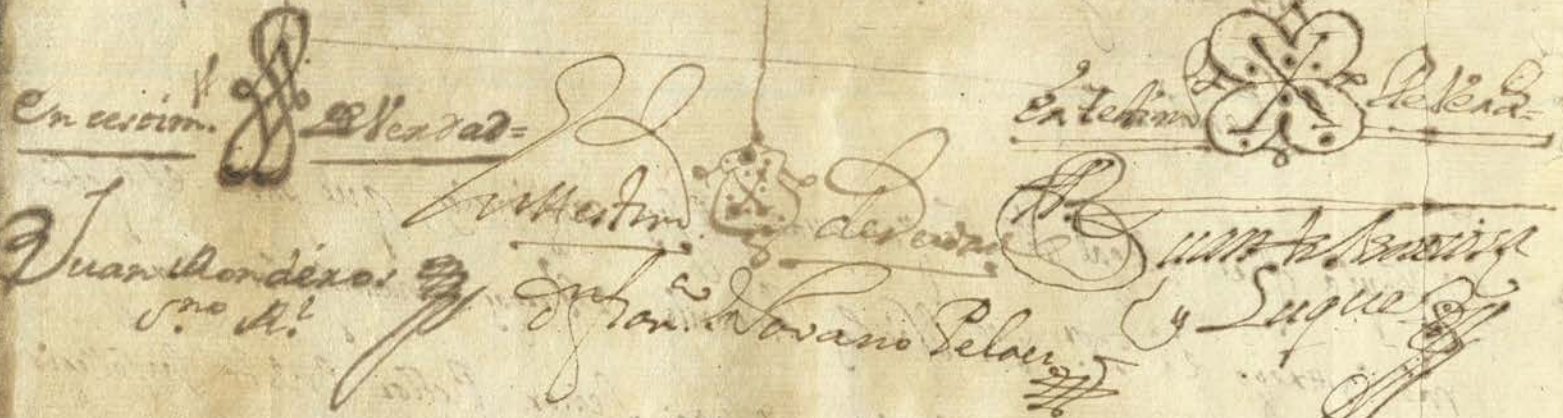 En testim.º de Verdad=
Juan Mondéxar
s.no R.l
En testim.
de verdad
Lozano Pelaez
En testimo de Verd=
Juan de
y Luque